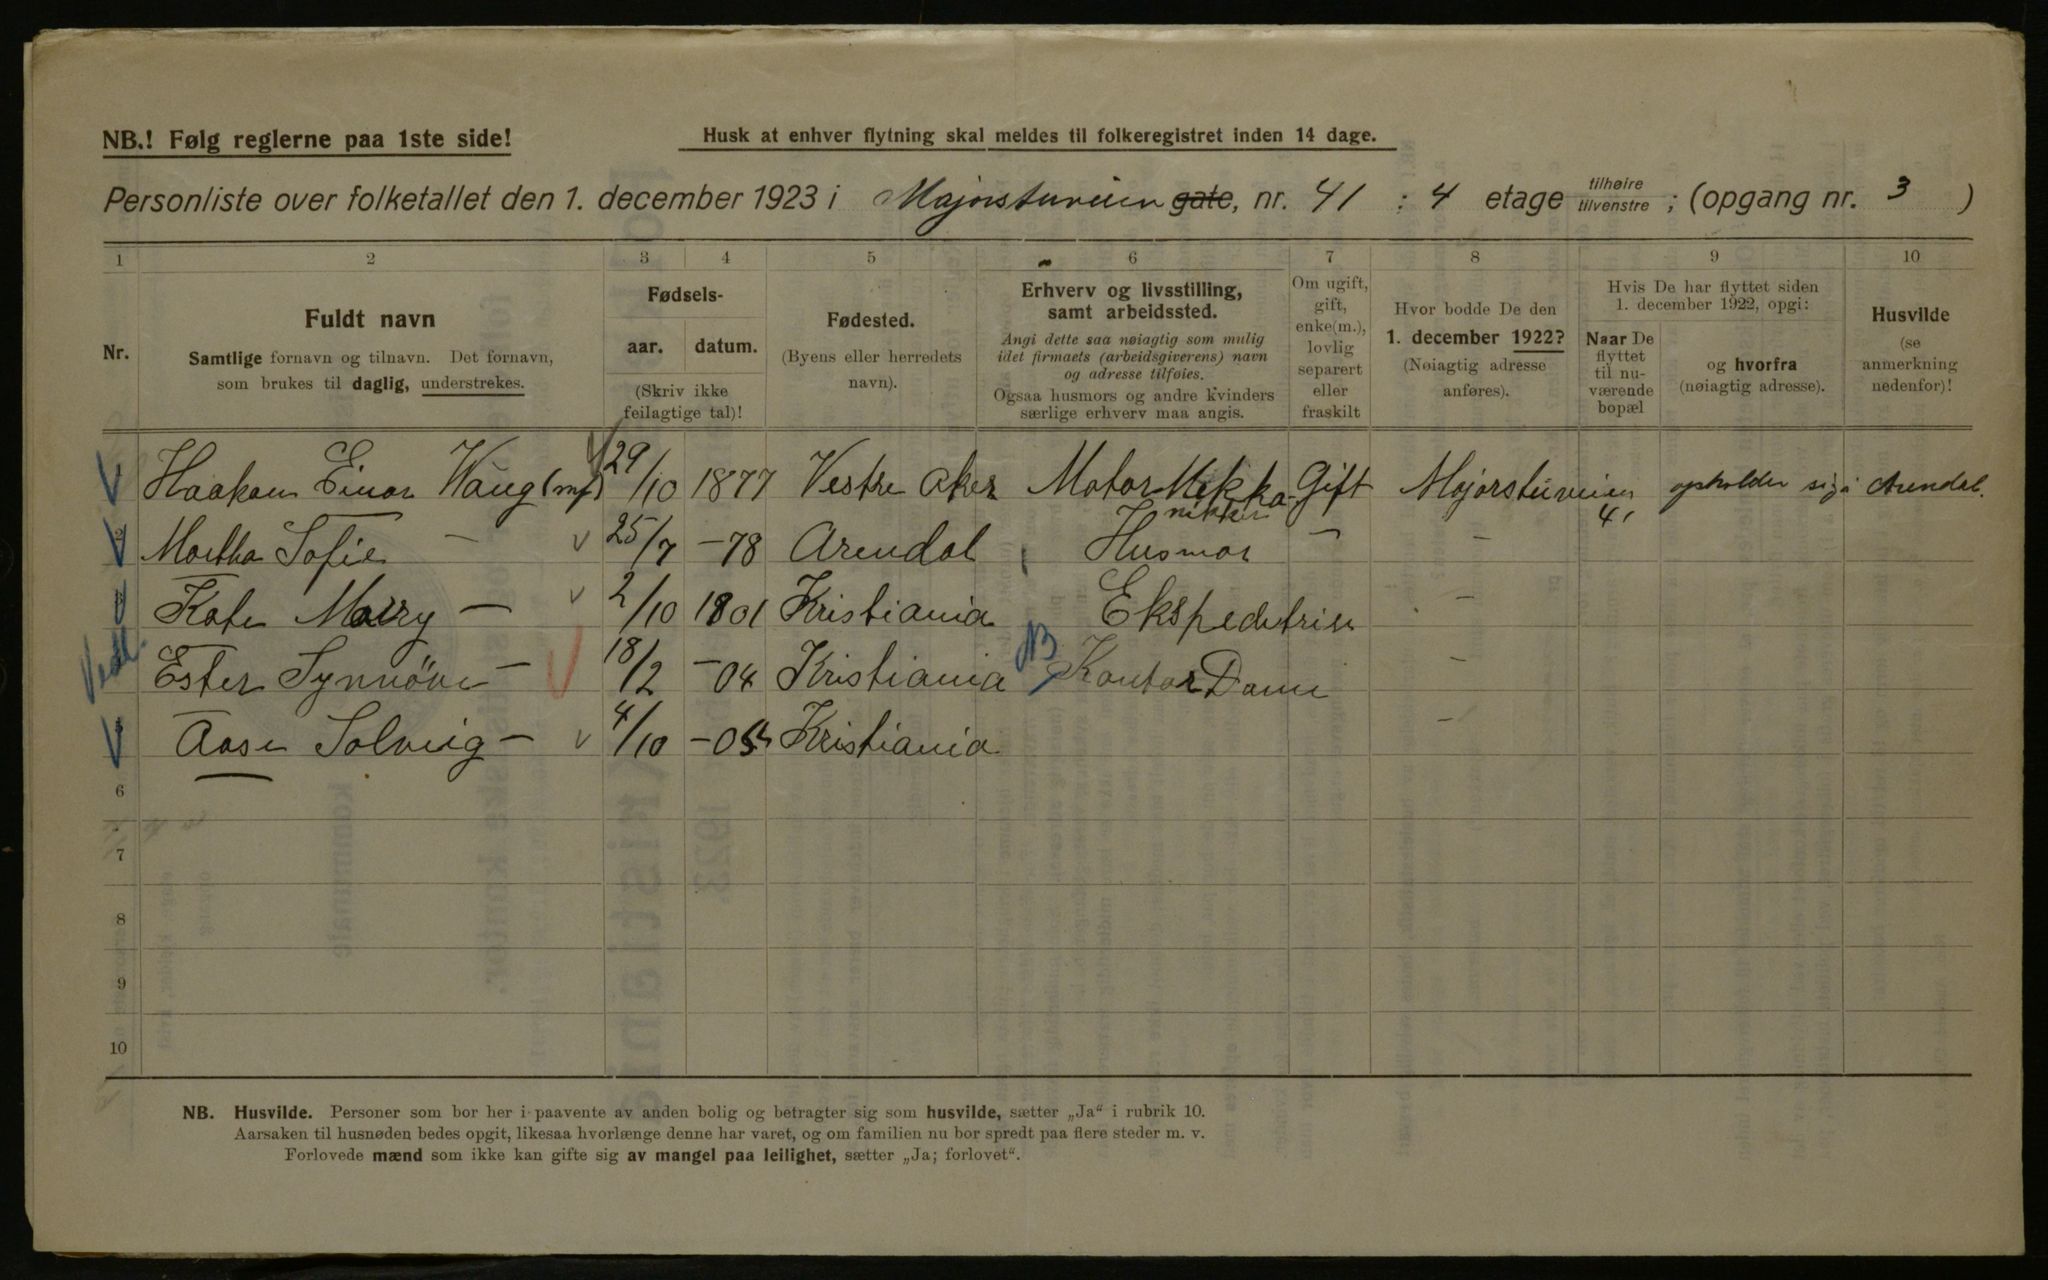 NB.! Følg reglerne paa 1ste side!
Husk at enhver flytning skal meldes til folkeregistret inden 14 dage.
Personliste over folketallet den 1. december 1923 i Majorstuveien gate, nr. 41 : 4 etage tilhøire tilvenstre ; (opgang nr. 3 )
1 2 3 4 5 6 7 8 9 10
Nr.
Fuldt navn
Samtlige fornavn og tilnavn. Det fornavn,
som brukes til daglig, understrekes.
Fødsels-
aar. datum.
(Skriv ikke
feilagtige tal)!
Fødested.
(Byens eller herredets
navn).
Erhverv og livsstilling,
samt arbeidssted.
Angi dette saa nøiagtig som mulig
idet firmaets (arbeidsgiverens) navn
og adresse tilføies.
Ogsaa husmors og andre kvinders
særlige erhverv maa angis.
Om ugift,
gift,
enke(m.),
lovlig
separert
eller
fraskilt
Hvor bodde De den
1. december 1922?
(Nøiagtig adresse
anføres).
Hvis De har flyttet siden
1. december 1922, opgi:
Naar De
flyttet
til nu-
værende
bopæl
og hvorfra
(nøiagtig adresse).
Husvilde
(se
anmerkning
nedenfor)!
Haakon Einar Waug (mf) 29/10 1877 Vestre Aker Motor Mekka- Gift Majorstuveien opholder sig i Arendal.
nikker 41
Martha Sofie — 25/7 —78 Arendal Husmor — —
Kate Mary — 2/10 1901 Kristiania Ekspeditrise —
Ester Synnöve — 18/2 —04 Kristiania NB Kontor Dame —
Aase Solveig — 4/10 —05 Kristiania —
6
7
8
9
10
NB. Husvilde. Personer som bor her i paavente av anden bolig og betragter sig som husvilde, sætter „Ja“ i rubrik 10.
Aarsaken til husnøden bedes opgit, likesaa hvorlænge denne har varet, og om familien nu bor spredt paa flere steder m. v.
Forlovede mænd som ikke kan gifte sig av mangel paa leilighet, sætter „Ja; forlovet“.